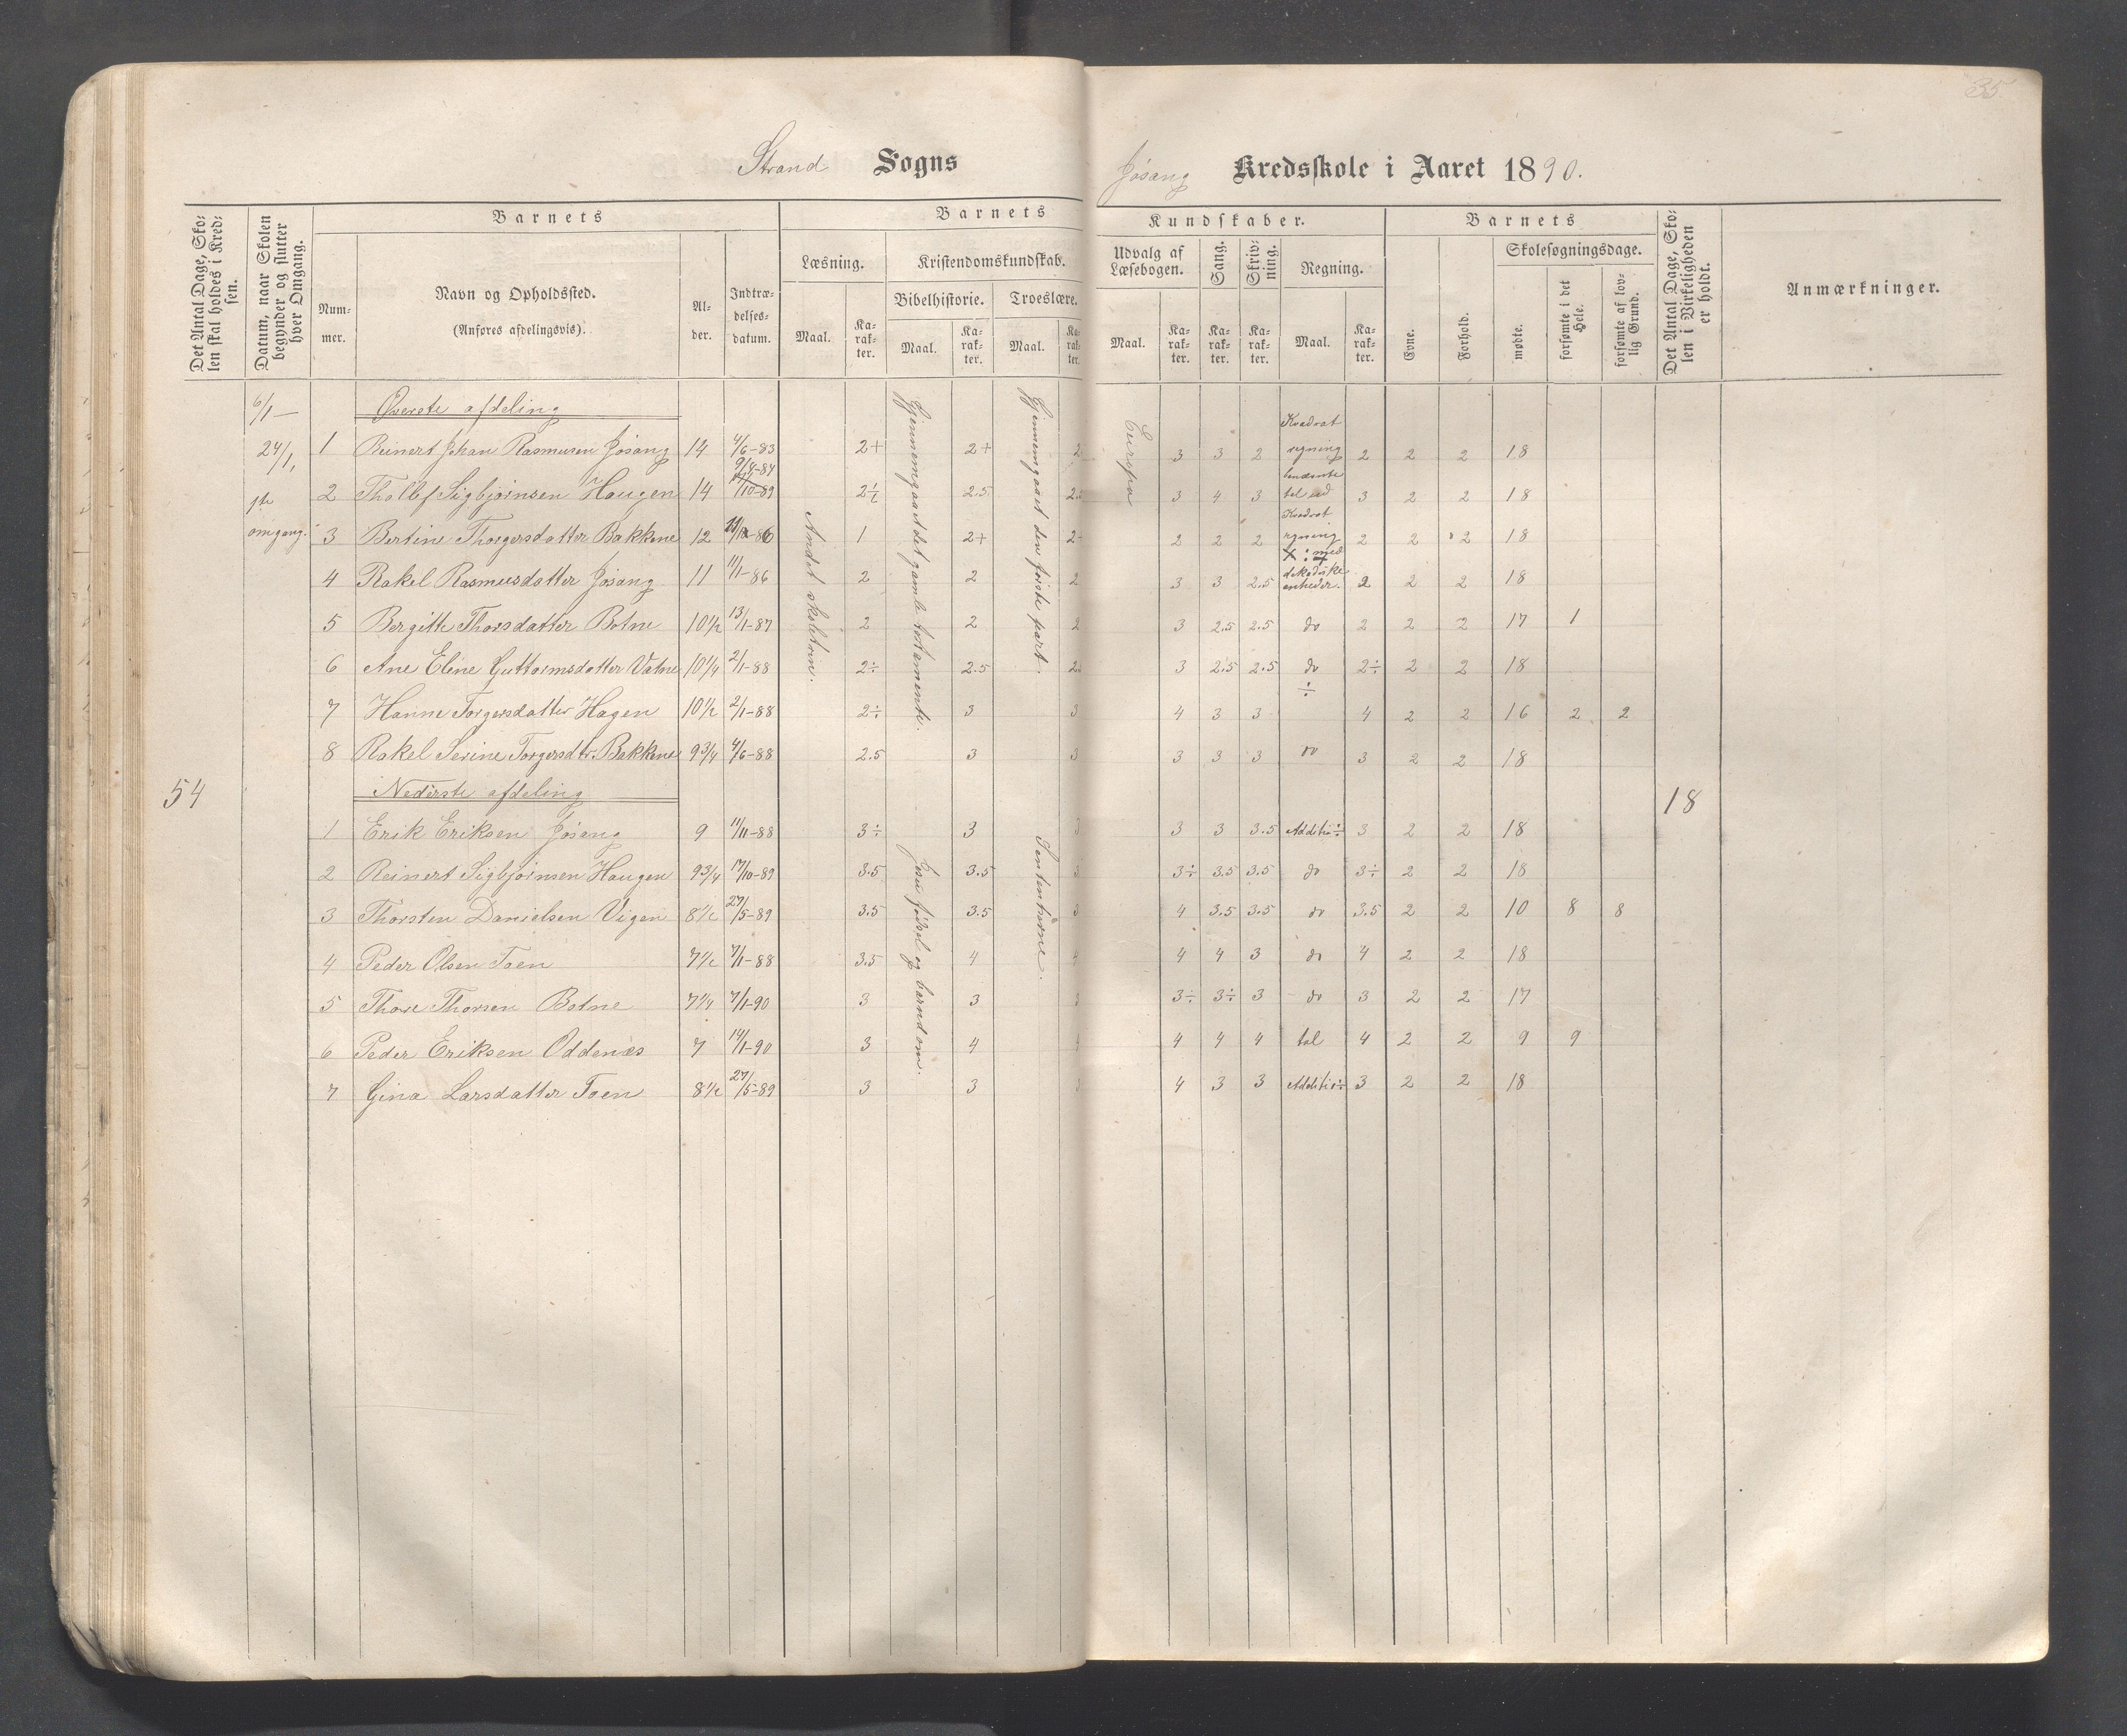 35
Strand Sogns
Jøsang Kredsskole i Aaret 1890.
Det Antal Dage, Skolen skal holdes i Kredsen.
Datum, naar Skolen begynder og slutter hver Omgang.
Barnets
Nummer.
Navn og Opholdssted.
(Anføres afdelingsvis).
Alder.
Indtrædelsesdatum.
Barnets
Læsning.
Maal.
Karakter.
Kristendomskundskab.
Bibelhistorie.
Maal.
Karakter.
Troeslære.
Maal.
Karakter.
Kundskaber.
Udvalg af Læsebogen.
Maal.
Karakter.
Sang.
Karakter.
Skrivning.
Karakter.
Regning.
Maal.
Karakter.
Barnets
Evne.
Forhold.
Skolesøgningsdage.
mødte.
forsømte i det Hele.
forsømte af lovlig Grund.
Det Antal Dage, Skolen i Virkeligheden er holdt.
Anmærkninger.
6/1 —
24/1,
1ste
omgang.
54
Andet skoletrin.
Gjennemgaaet det gamle testamente.
Gjennemgaaet den første part.
Europa
Øverste afdeling
1 Reinert Johan Rasmusen Jøsang 14 4/6-83 2+ 2+ 2 3 3 2 Kvadrat regning 2 2 2 18
9/4-84
2 Tholf Sigbjørnsen Haugen 14 17/10-89 2½ 2.5 2.5 3 4 3 benævnte tal ved 3 2 2 18
3 Bertine Thorgersdatter Bakkene 12 11/12-86 1 2+ 2+ 2 2 2 Kvadrat regning 2 2 2 18
4 Rakel Rasmusdatter Jøsang 11 11/1-86 2 2 2 3 3 2.5 X : med dekadiske enheder. 2 2 2 18
5 Bergitte Thorsdatter Botne 10½ 13/1-87 2 2 2 3 2.5 2.5 do 2 2 2 17 1
6 Ane Elene Guttormsdatter Vatne 10¼ 2/1-88 2÷ 2.5 2.5 3 2.5 2.5 do 2÷ 2 2 18
7 Hanne Torgersdatter Hagen 10½ 2/1-88 2÷ 3 3 4 3 3 ÷ 4 2 2 16 2 2
8 Rakel Serine Torgersdtr. Bakkene 9¾ 4/6-88 2.5 3 3 3 3 3 do 3 2 2 18
Nederste afdeling
18
Jesu fødsel og barndom.
Sententserne.
1 Erik Eriksen Jøsang 9 11/11-88 3÷ 3 3 3 3 3.5 Additio÷ 3 2 2 18
2 Reinert Sigbjørnsen Haugen 9¾ 17/10-89 3.5 3.5 3 3÷ 3.5 3.5 do 3÷ 2 2 18
3 Thorsten Danielsen Vigen 8½ 27/5-89 3.5 3.5 3 4 3.5 3.5 do 3.5 2 2 10 8 8
4 Peder Olsen Toen 7½ 7/1-88 3.5 4 4 4 4 3 do 4 2 2 18
5 Thore Thorsen Botne 7¼ 7/1-90 3 3 3 3÷ 3÷ 3 do 3 2 2 17
6 Peder Eriksen Oddenæs 7 14/1-90 3 4 4 4 4 4 tal 4 2 2 9 9
7 Gina Larsdatter Toen 8½ 27/5-89 3 3 3 4 3 3 Additio÷ 3 2 2 18